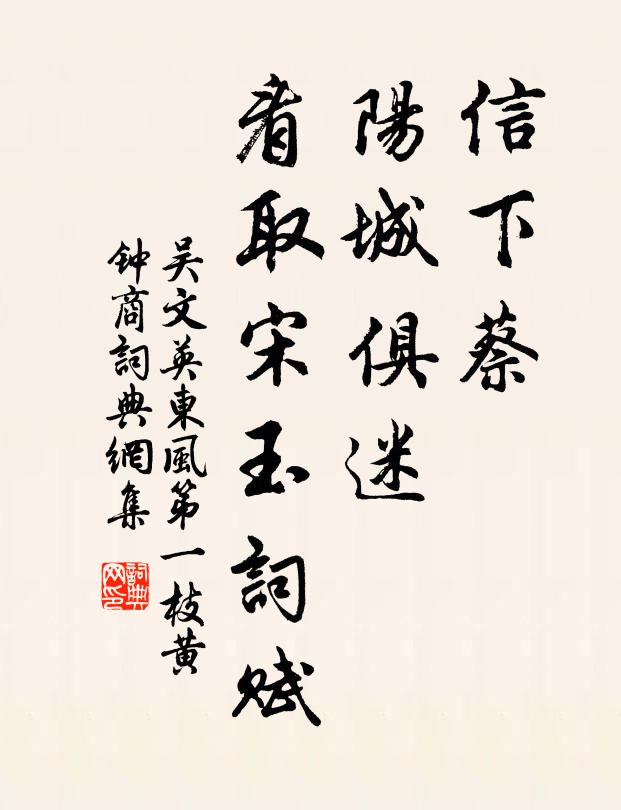 信下蔡
陽城俱迷
看取宋玉詞賦
吴文英東風第一枝黄
钟商詞典網集
詞典网印